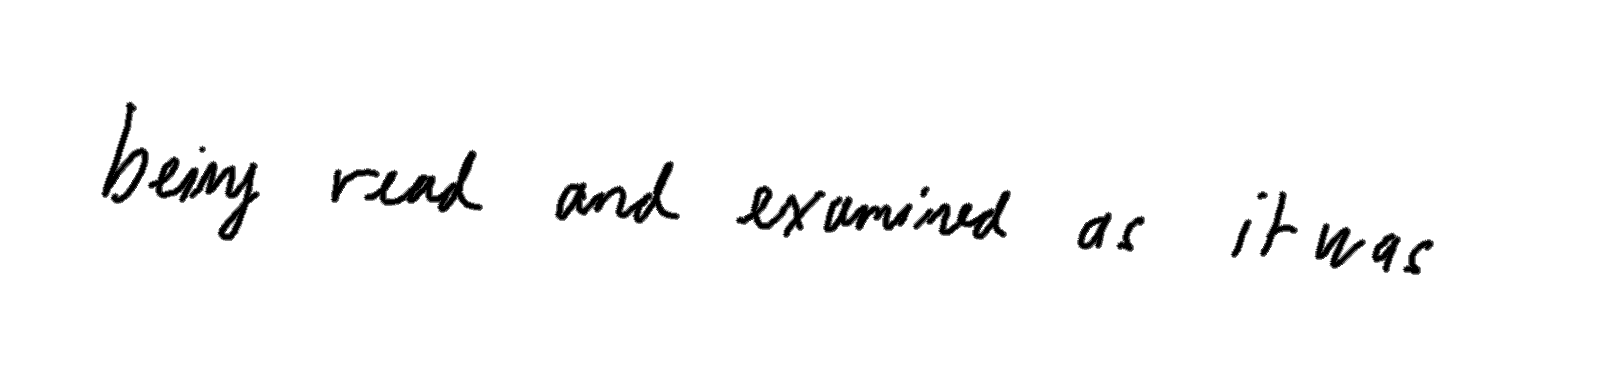 being read and examined as it was